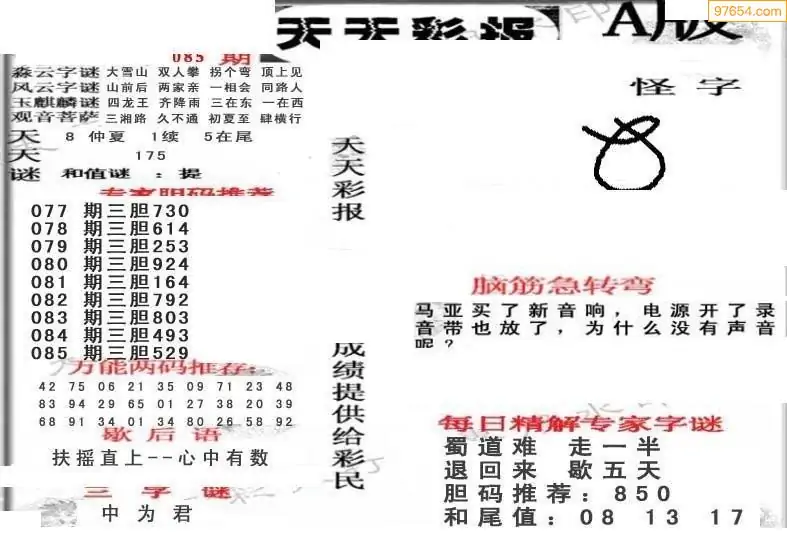 97654.com
天天彩报
A版
085 期
淼云字谜 大雪山 双人攀 拐个弯 顶上见
风云字谜 山前后 两家亲 一相会 同路人
玉麒麟谜 四龙王 齐降雨 三在东 一在西
观音菩萨 三湘路 久不通 初夏至 肆横行
天 8 仲夏 1续 5在尾
天 175
谜 和值谜 : 提
专家胆码推荐
077 期三胆730
078 期三胆614
079 期三胆253
080 期三胆924
081 期三胆164
082 期三胆792
083 期三胆803
084 期三胆493
085 期三胆529
万能两码推荐:
42 75 06 21 35 09 71 23 48
83 94 29 65 01 27 38 20 39
68 91 34 01 34 80 26 58 92
歇后语
扶摇直上--心中有数
三字谜
中为君
天天彩报
成绩提供给彩民
怪字
脑筋急转弯
马亚买了新音响，电源开了录
音带也放了，为什么没有声音
呢？
每日精解专家字谜
蜀道难 走一半
退回来 歇五天
胆码推荐: 850
和尾值: 08 13 17